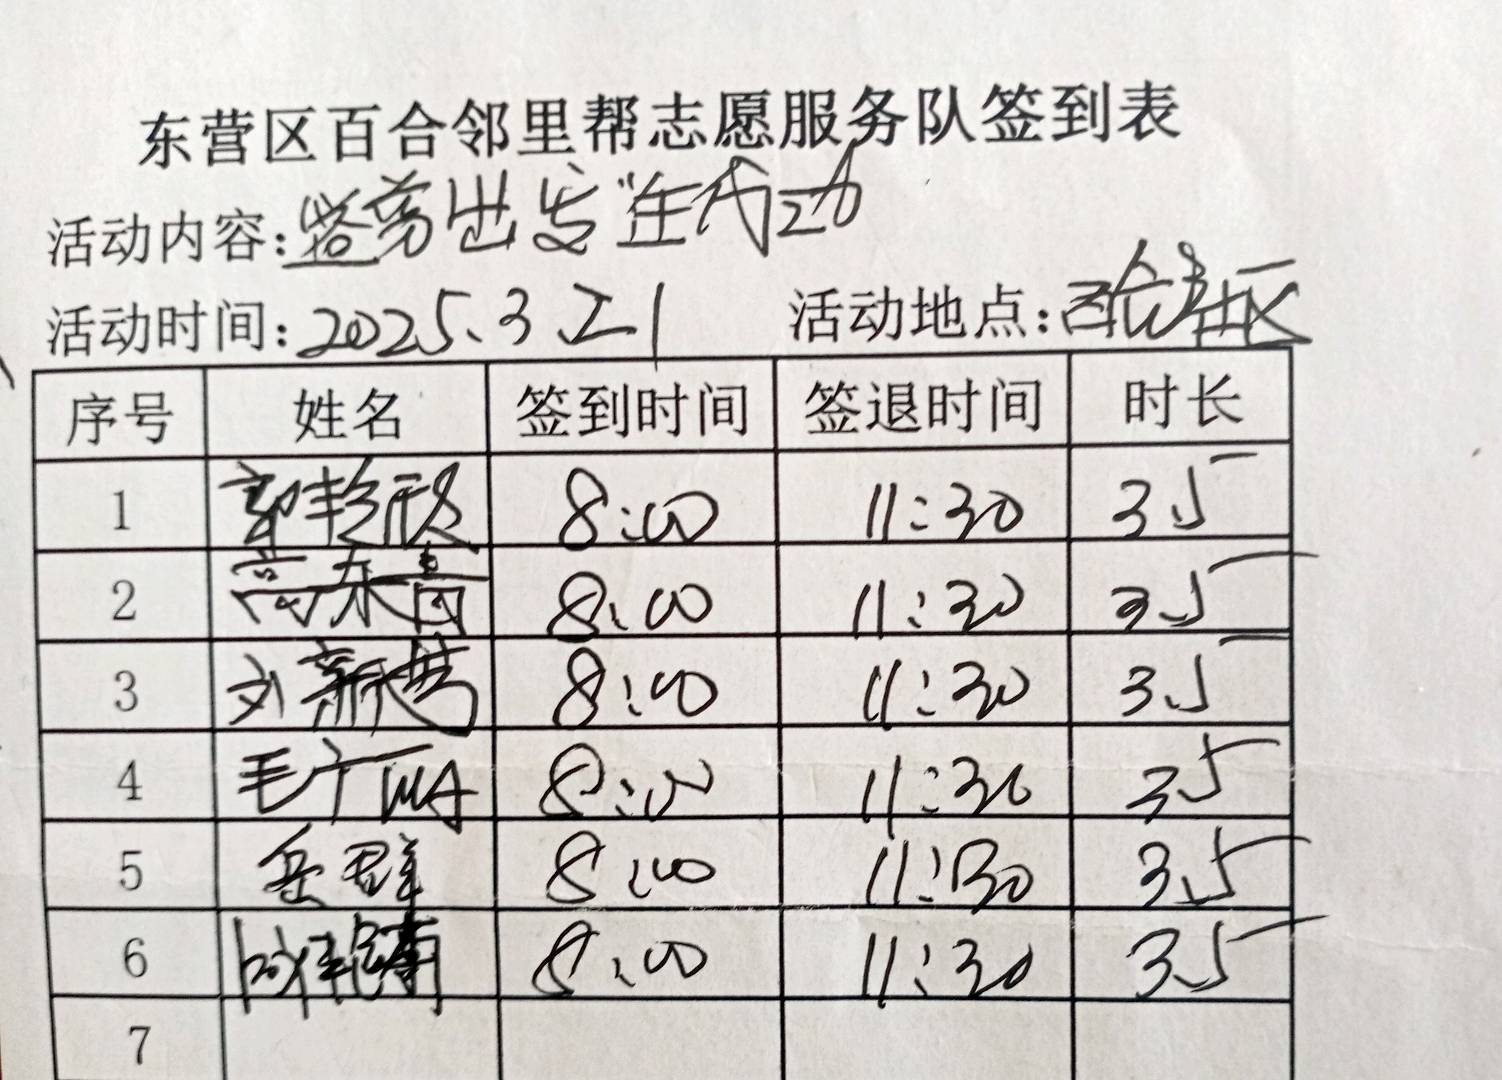 东营区百合邻里帮志愿服务队签到表
活动内容: 出发"年代动
活动时间: 2025.3.21 活动地点: 百合社区
序号 姓名 签到时间 签退时间 时长
1 8:00 11:30 3.5
2 高东 8:00 11:30 3.5
3 刘新 8:00 11:30 3.5
4 毛广 8:00 11:30 3.5
5 岳群 8:00 11:30 3.5
6 8:00 11:30 3.5
7